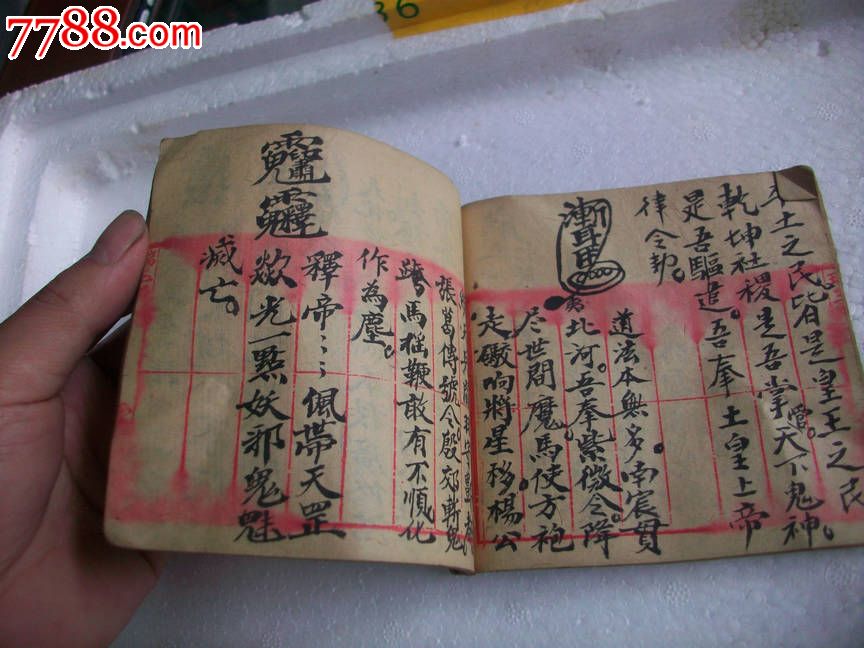 7788.com
36
土之民皆是皇王之民
乾坤社稷是吾掌管天下鬼神。
是吾驅追。吾奉土皇上帝
律令勅。
道法本無多。南宸貫
北河。吾奉紫微令降
尽世間魔馬使方袍
走礮响將星移楊公
張葛傳號令。殷郊斬鬼
跨馬摇鞭敢有不順化
作為塵。
釋帝〻佩帶天罡
歘光一點妖邪鬼魅
滅亡。